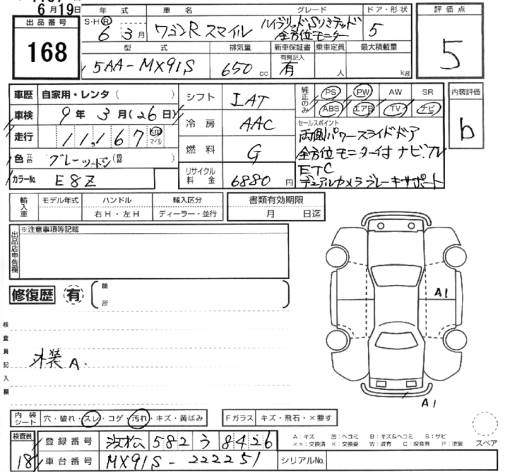 6月19日
出品番号
168
年式 車名 グレード ドア・形状 評価点
S・H・R 6年 3月 ワゴンR スマイル ハイブリッドS リミテッド 全方位モニター 5 5
型式 排気量 新車保証書 乗車定員 最大積載量
5AA-MX91S 650cc 有 人 kg
車歴 自家用・レンタ
車検 9年 3月(26日)
走行 11,167 km マイル
色 グレーツートン
カラーNo. E8Z
シフト IAT
冷房 AAC
燃料 G
リサイクル料金 6880円
純正のみ PS PW AW SR
ABS エアB TV ナビ
セールスポイント
両側パワースライドドア
全方位モニター付 ナビ TV
ETC
デュアルカメラブレーキサポート
内装評価
b
輸入車 モデル年式 ハンドル 輸入区分
右H・左H ディーラー・並行
書類有効期限
月 日迄
出品店申告欄
※注意事項等記載
修復歴 有
検査員記入欄
外装 A
A1
A1
A1
内装シート 穴・破れ・スレ・コゲ・汚れ・キズ・黄ばみ
Fガラス キズ・飛石・×要す
スペア
検査員
18
登録番号 浜松 582 う 8426
車台番号 MX91S-222251
シリアルNo.